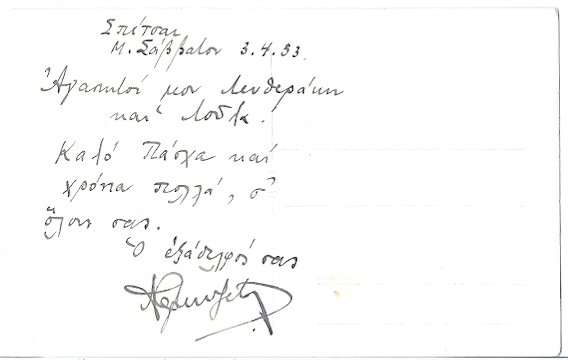 Σπέτσαι
Μ. Σάββατον 3.4.53
Ἀγαπητοί μου
καί Λούλα.
Καλό Πάσχα καί
χρόνια πολλά, σ'
ὅλους σας.
Ὁ ἐξάδελφός σας